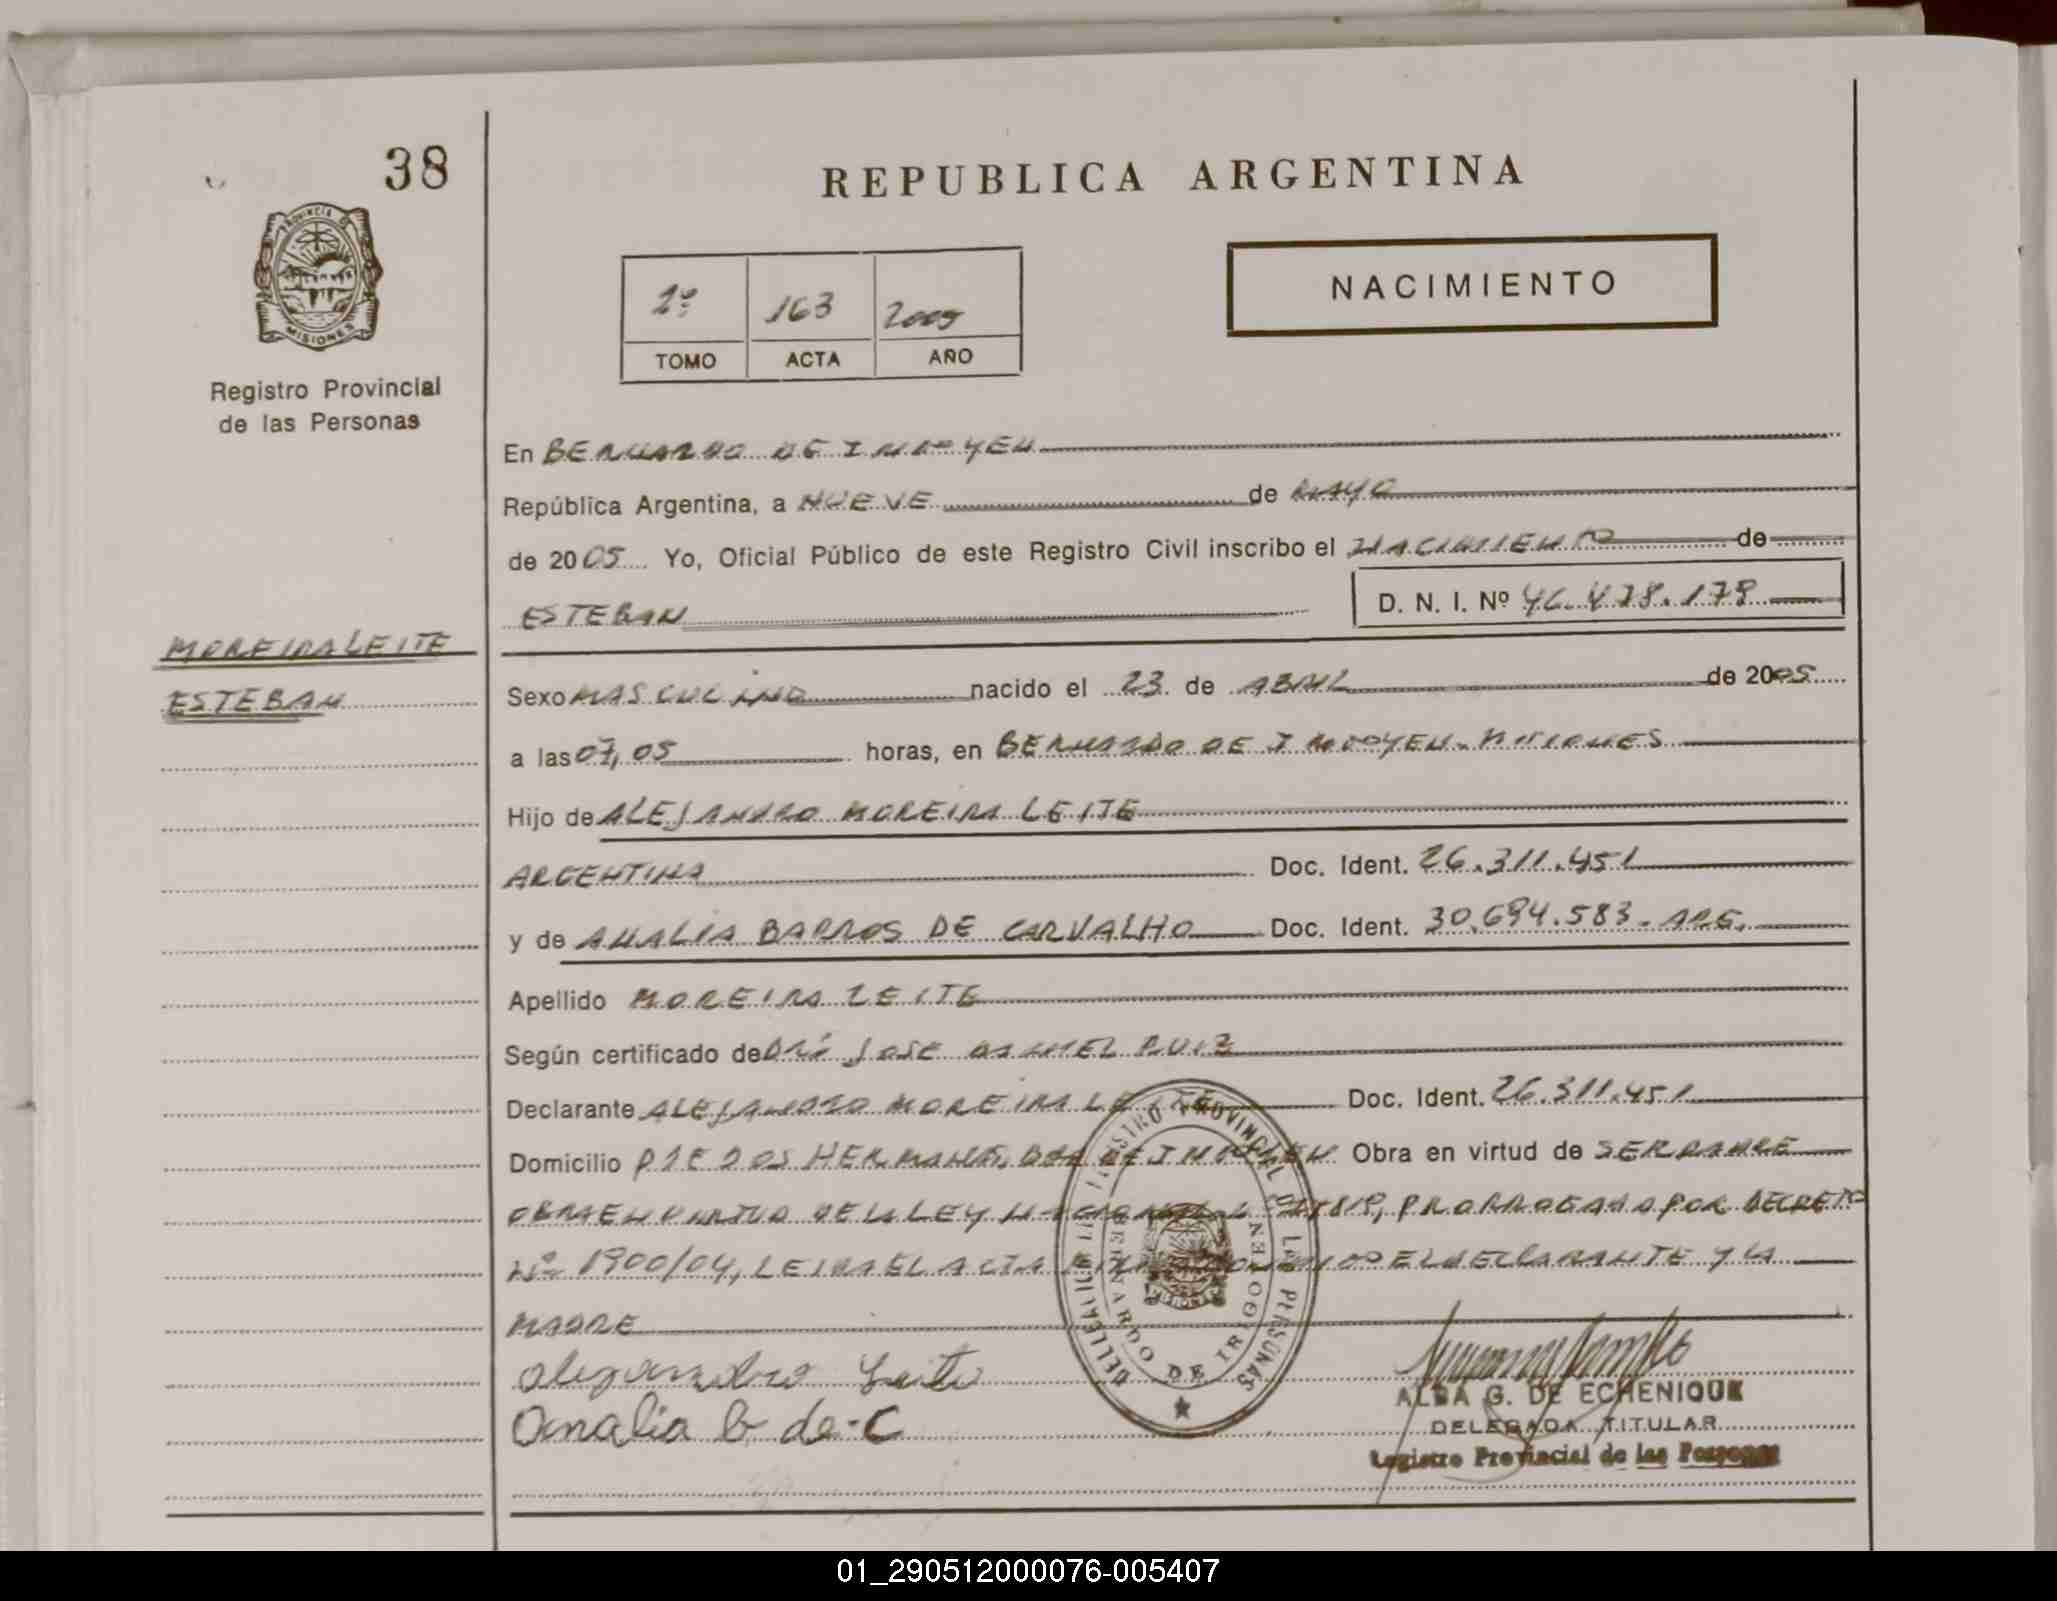 38
REPUBLICA ARGENTINA
PROVINCIA DE
MISIONES
Registro Provincial
de las Personas
2º 163 2005
TOMO ACTA AÑO
NACIMIENTO
En BERNARDO DE IRIGOYEN
República Argentina, a NUEVE de MAYO
de 2005 Yo, Oficial Público de este Registro Civil inscribo el NACIMIENTO de
ESTEBAN D. N. I. Nº 46.478.178
MOREIRA LEITE
ESTEBAN
Sexo MASCULINO nacido el 23 de ABRIL de 2005
a las 07,05 horas, en BERNARDO DE IRIGOYEN-MISIONES
Hijo de ALEJANDRO MOREIRA LEITE
ARGENTINA Doc. Ident. 26.311.451
y de AMALIA BARROS DE CARVALHO Doc. Ident. 30.694.583-ARG.
Apellido MOREIRA LEITE
Según certificado de JOSE DANIEL RUIZ
Declarante ALEJANDRO MOREIRA LEITE Doc. Ident. 26.311.451
Domicilio PJE DOS HERMANAS, BDO DE IRIGOYEN Obra en virtud de SER PADRE
OBRA EN VIRTUD DE LA LEY NACIONAL PRORROGADA POR DECRETO
Nº 1900/04, LEIDA EL ACTA EL DECLARANTE Y LA
MADRE
alejandro Leite
Amalia b de-C
DELEGACION REGISTRO PROVINCIAL DE LAS PERSONAS
BERNARDO DE IRIGOYEN
ALBA G. DE ECHENIQUE
DELEGADA TITULAR
Registro Provincial de las Personas
01_290512000076-005407